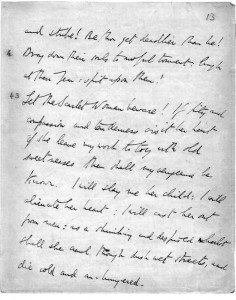 13
and strike! Be thou yet deadlier than he!
Drag down their souls to awful torment: laugh
at their fear: spit upon them!
43 Let the Scarlet Woman beware! If pity and
compassion and tenderness visit her heart
if she leave my work to toy with old
sweetnesses then shall my vengeance be
known. I will slay me her child: I will
alienate her heart: I will cast her out
from men: as a shrinking and despised harlot
shall she crawl through dusk wet streets, and
die cold and an-hungered.